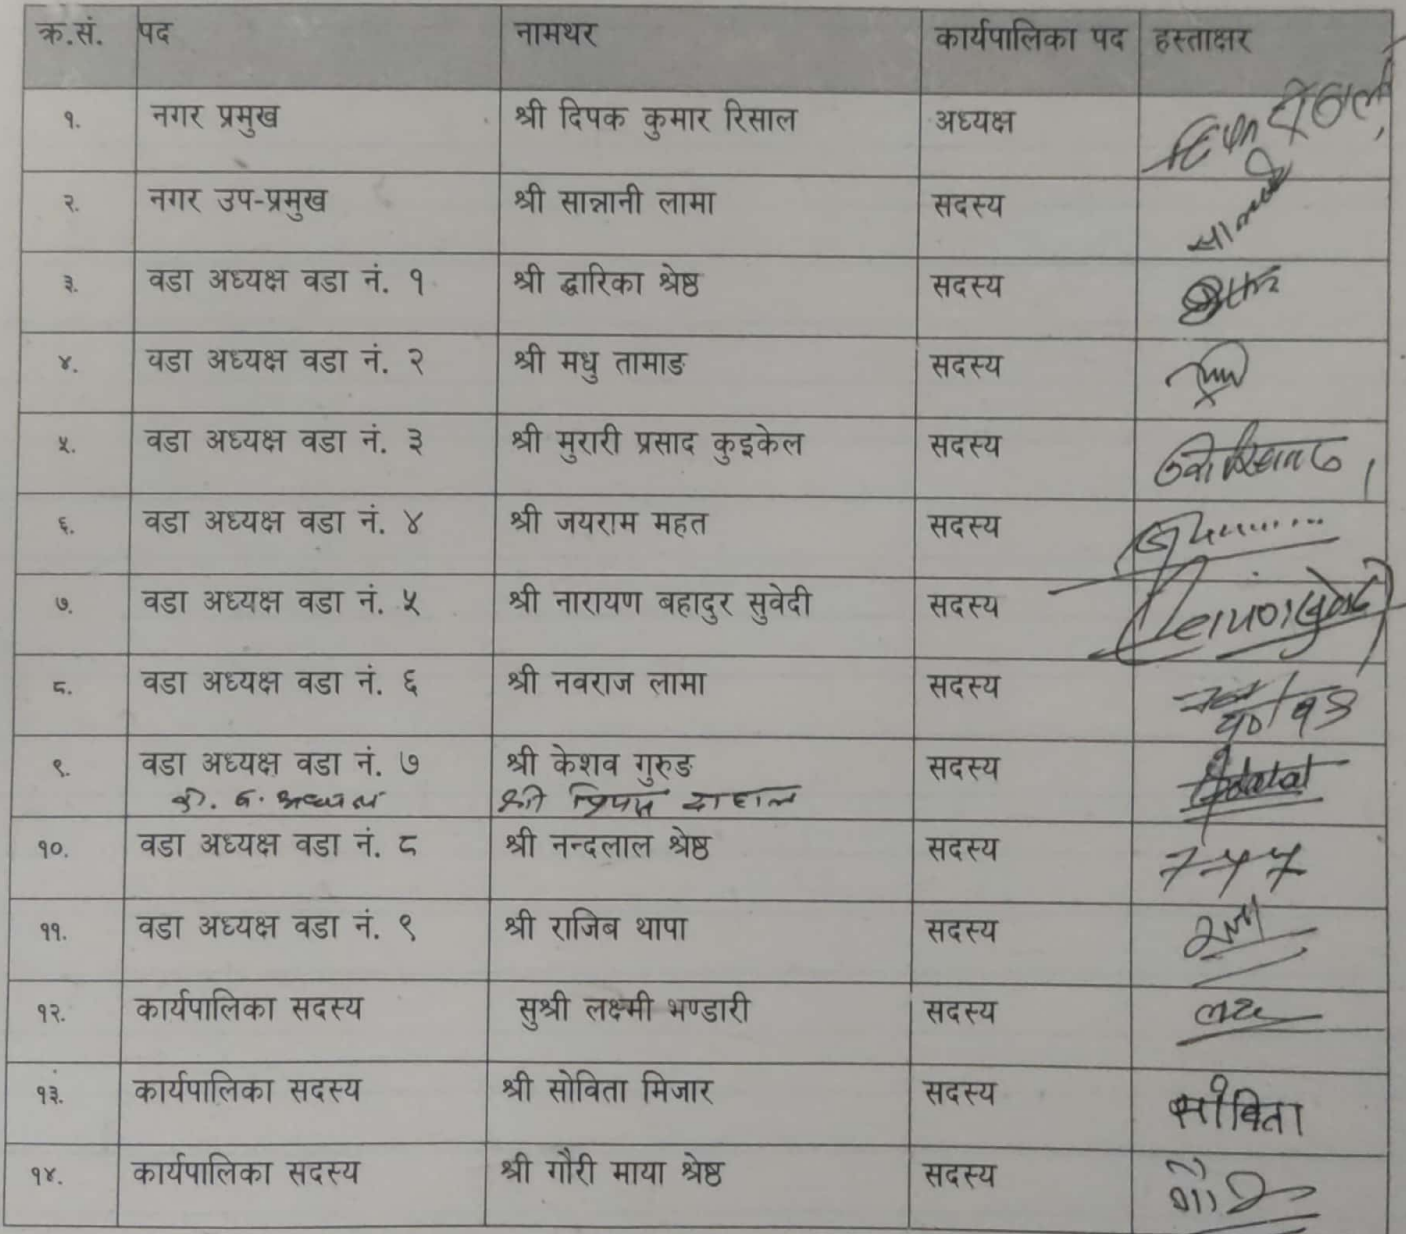 क्र.सं. पद नामथर कार्यपालिका पद हस्ताक्षर
१. नगर प्रमुख श्री दिपक कुमार रिसाल अध्यक्ष
२. नगर उप-प्रमुख श्री सान्नानी लामा सदस्य
३. वडा अध्यक्ष वडा नं. १ श्री द्धारिका श्रेष्ठ सदस्य
४. वडा अध्यक्ष वडा नं. २ श्री मधु तामाङ सदस्य
५. वडा अध्यक्ष वडा नं. ३ श्री मुरारी प्रसाद कुइकेल सदस्य
६. वडा अध्यक्ष वडा नं. ४ श्री जयराम महत सदस्य
७. वडा अध्यक्ष वडा नं. ५ श्री नारायण बहादुर सुवेदी सदस्य
८. वडा अध्यक्ष वडा नं. ६ श्री नवराज लामा सदस्य
९. वडा अध्यक्ष वडा नं. ७ श्री केशव गुरुङ सदस्य
श्री दाहाल
१०. वडा अध्यक्ष वडा नं. ८ श्री नन्दलाल श्रेष्ठ सदस्य
११. वडा अध्यक्ष वडा नं. ९ श्री राजिब थापा सदस्य
१२. कार्यपालिका सदस्य सुश्री लक्ष्मी भण्डारी सदस्य
१३. कार्यपालिका सदस्य श्री सोविता मिजार सदस्य सोविता
१४. कार्यपालिका सदस्य श्री गौरी माया श्रेष्ठ सदस्य